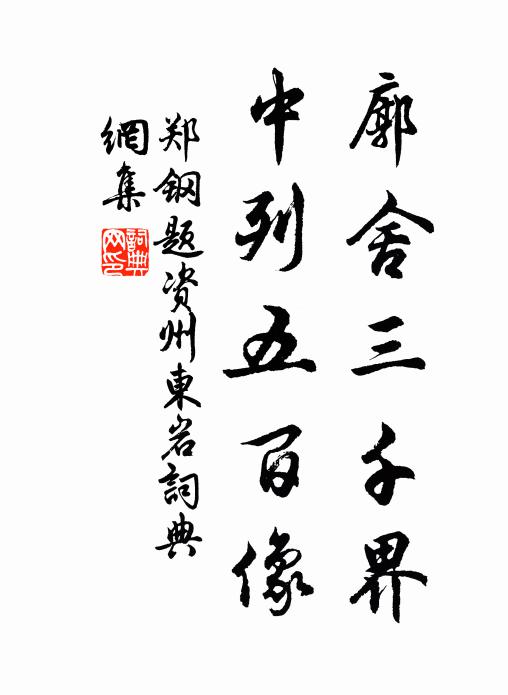 廓舍三千界
中列五百像
郑钢题资州東岩詞典
網集
詞典
网印